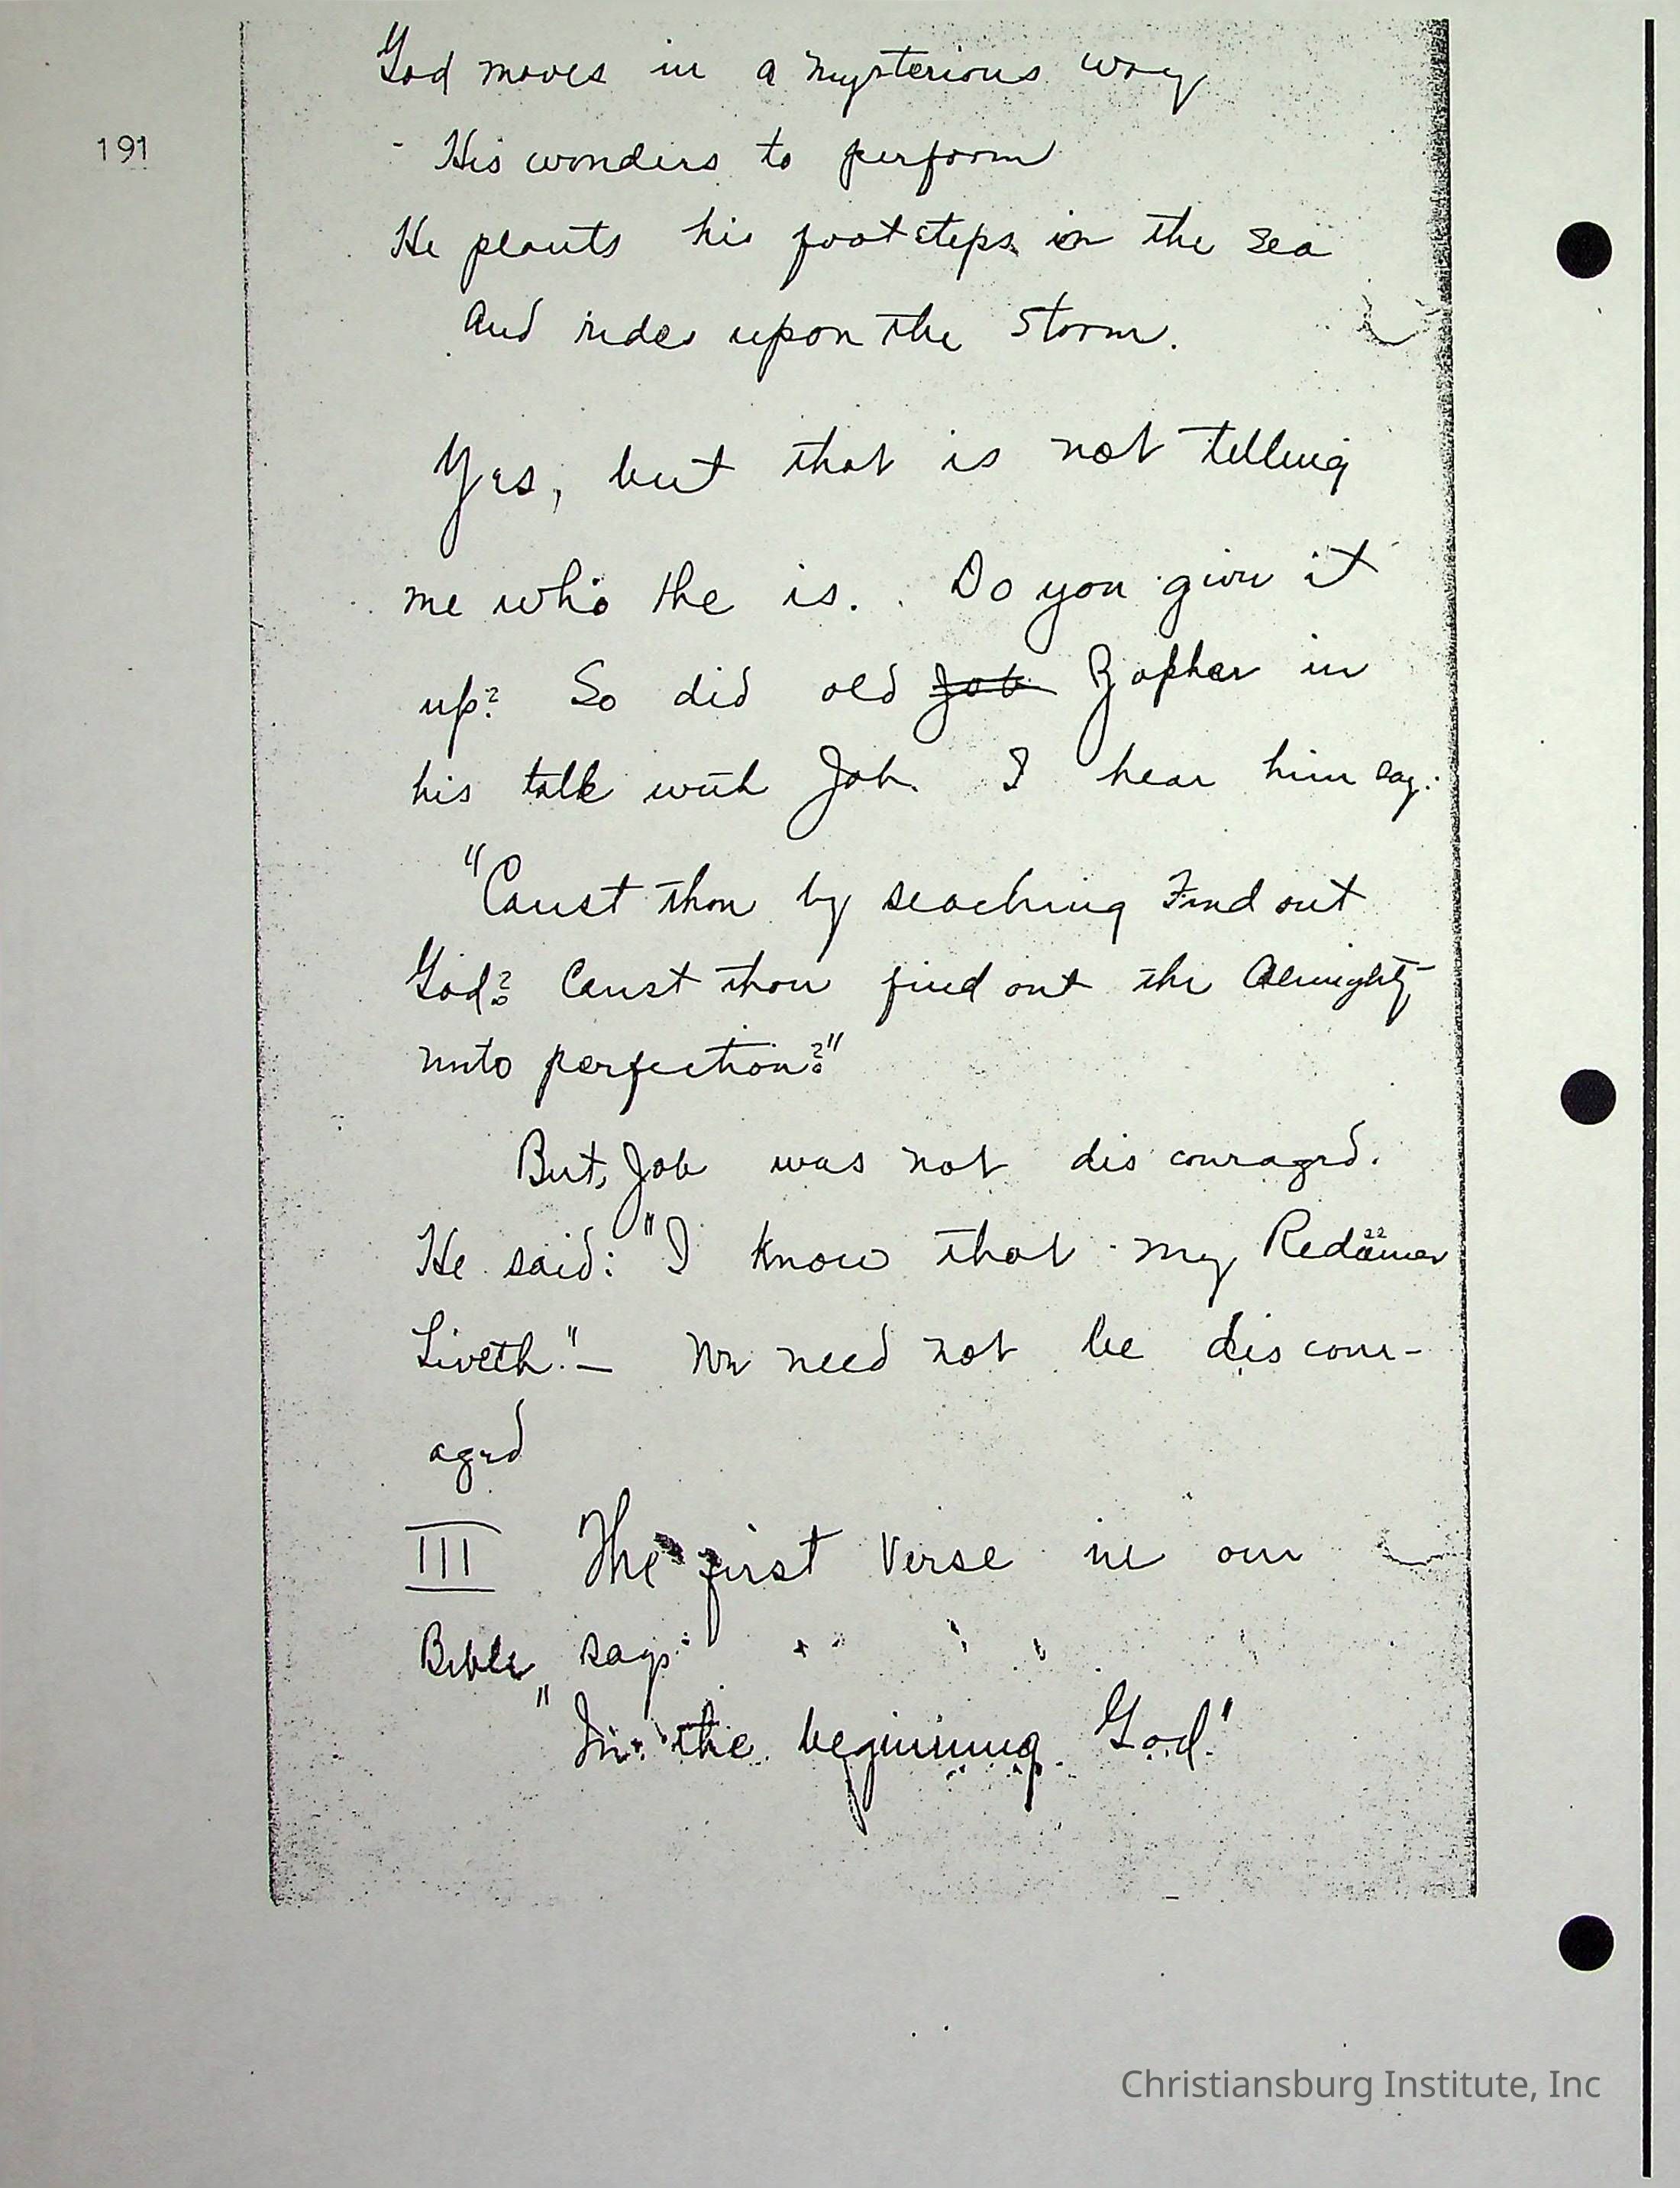 God moves in a mysterious way
191
- His wonders to perform
He plants his footsteps in the sea
And rides upon the storm.
Yes, but that is not telling
me who He is. Do you give it
up? So did old Job Zophar in
his talk with Job. I hear him say:
"Canst thou by seaching Find out
God? Canst thou find out the Almighty
unto perfection?"
But, Job was not discouraged.
He said: "I know that my Redeemer
Liveth." — We need not be discour-
aged
III The first Verse in our
Bible says:
"In the beginning God."
Christiansburg Institute, Inc